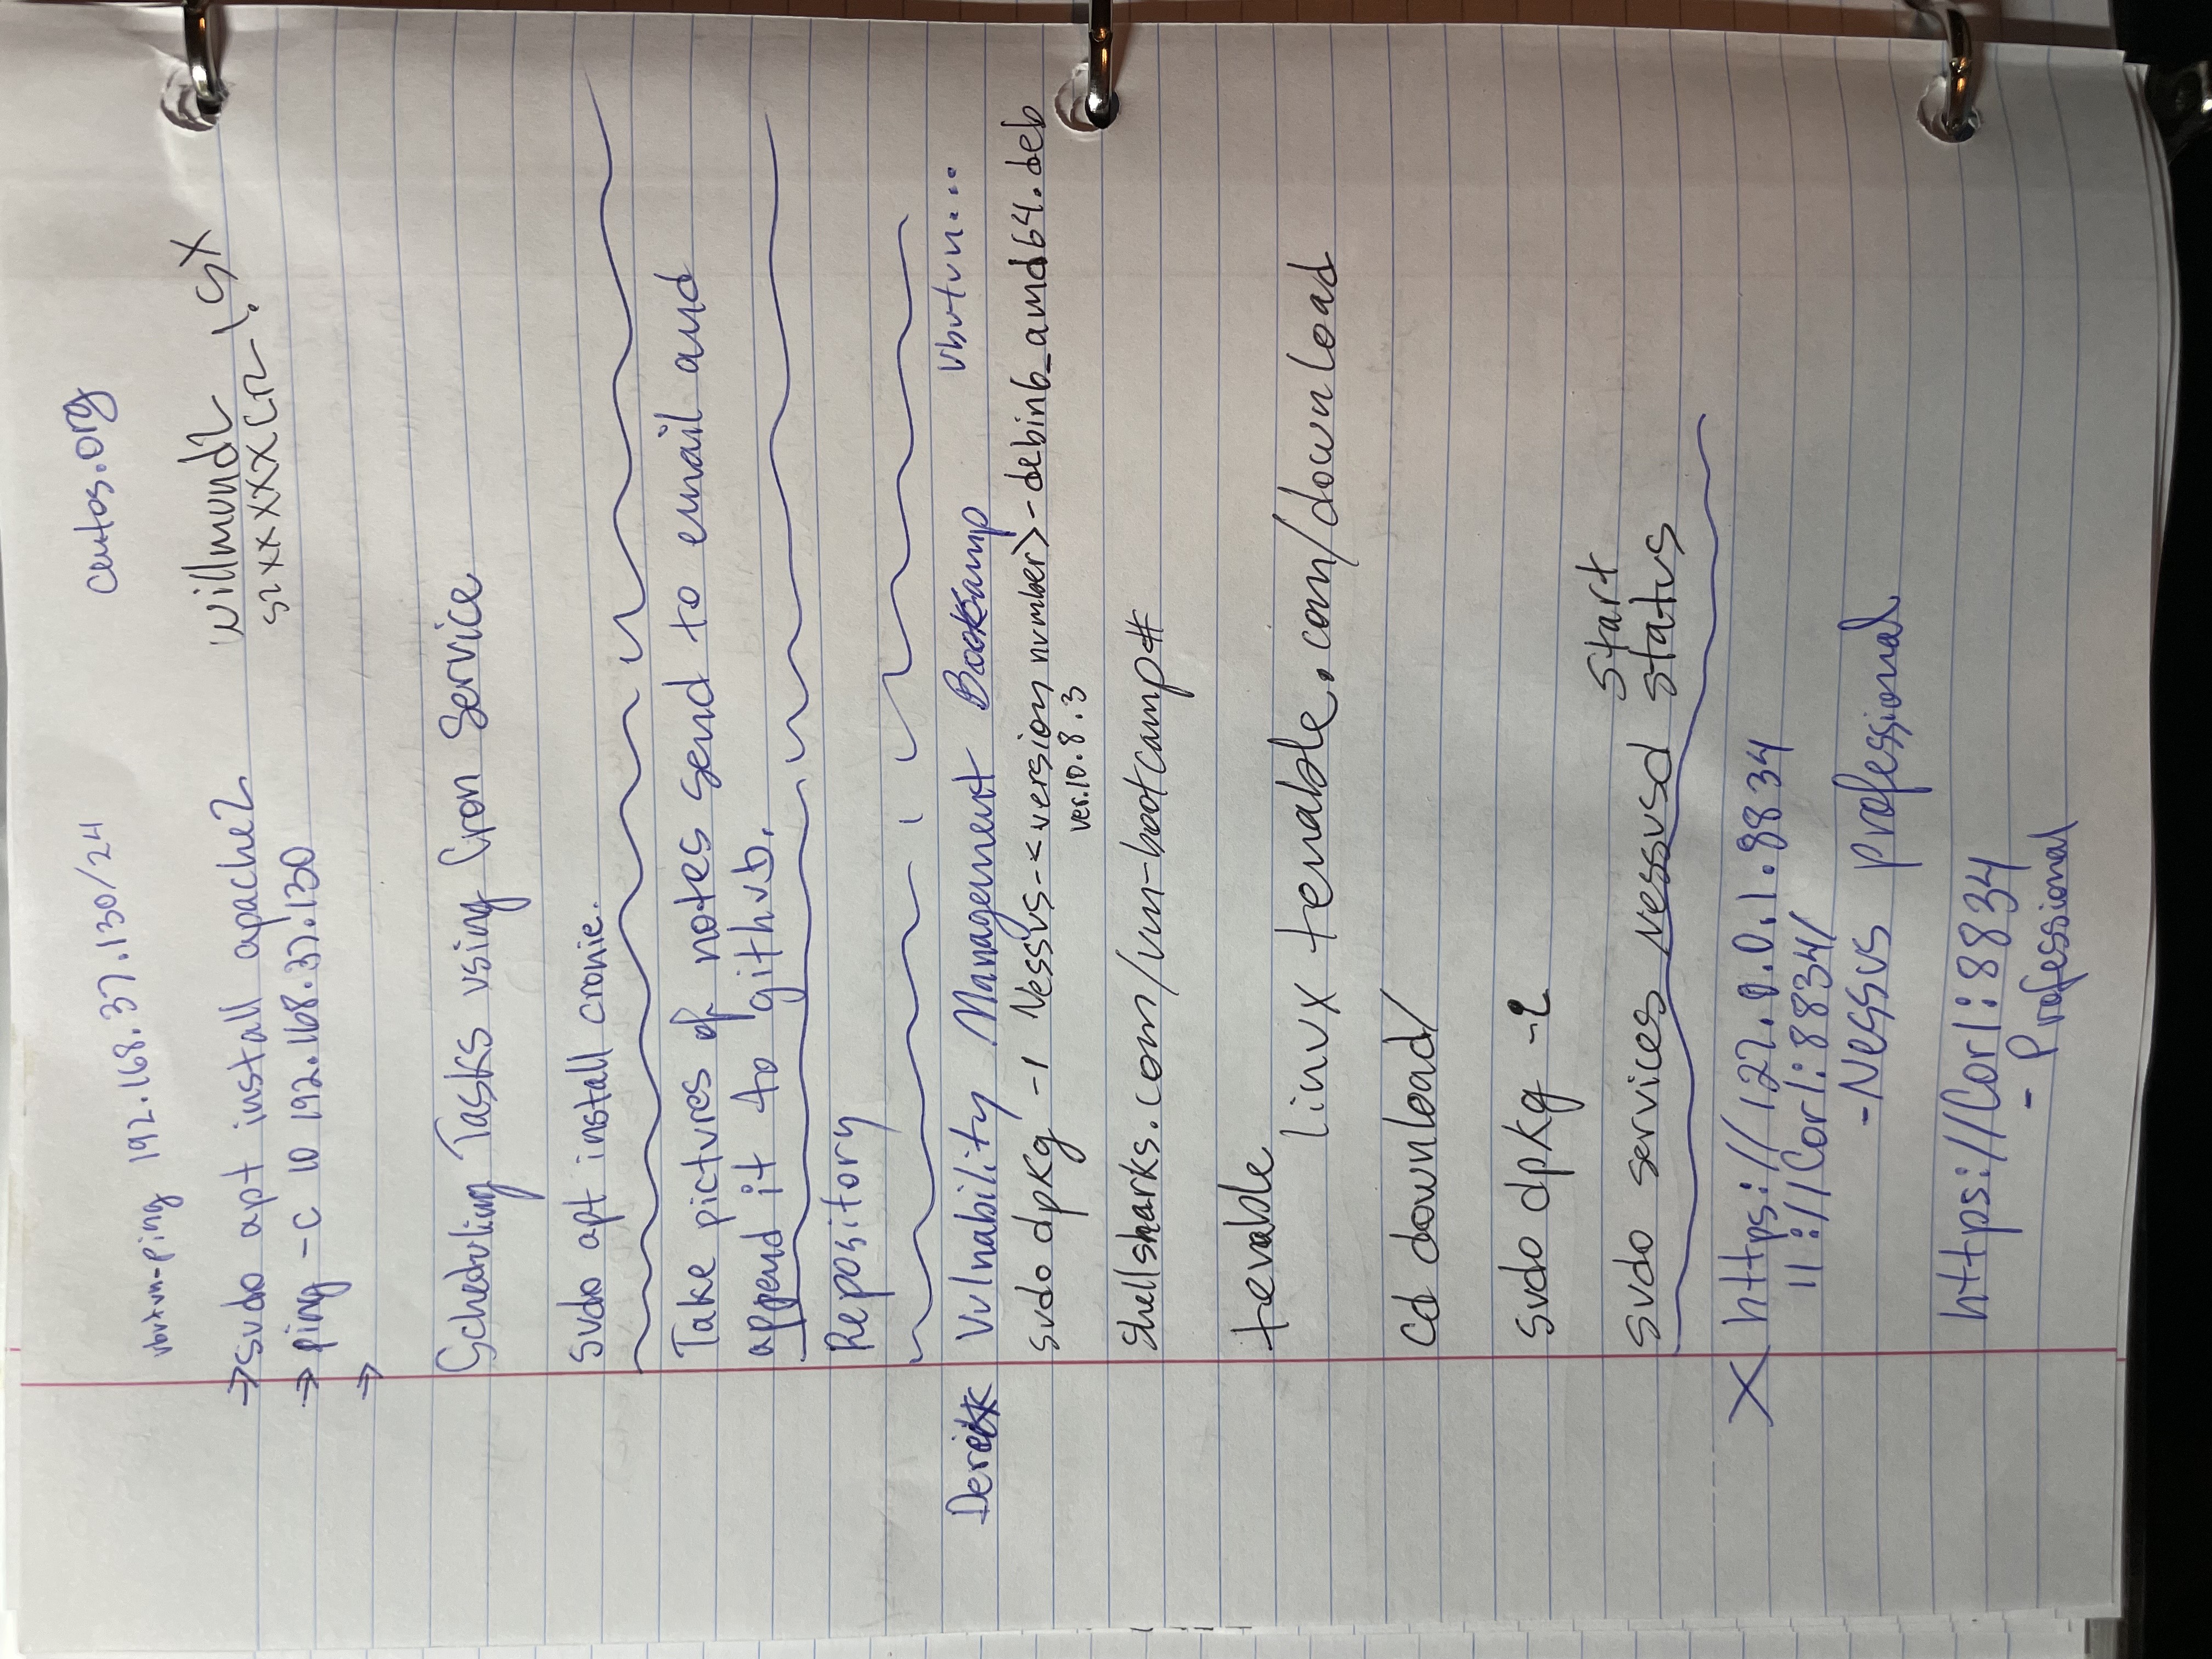 centos.org
ubutun-ping 192.168.37.130/24
willmund2
→sudo apt install apache2
→ ping -c 10 192.168.37.130
→
Scheduling Tasks using Cron Service
sudo apt install cronie.
Take pictures of notes send to email and
append it to github.
Repository
Ubutun...
Derek Vulnability Management Bootcamp
sudo dpkg -i Nessus-<version number>-debin6_amd64.deb
ver.10.8.3
shellsharks.com/vm-bootcamp#
tenable
linux tenable.com/download
cd download/
sudo dpkg -i
start
sudo services nessusd status
X https://127.0.0.1.8834
11://Corl:8834/
-Nessus professional
https://Corl:8834
- Professional